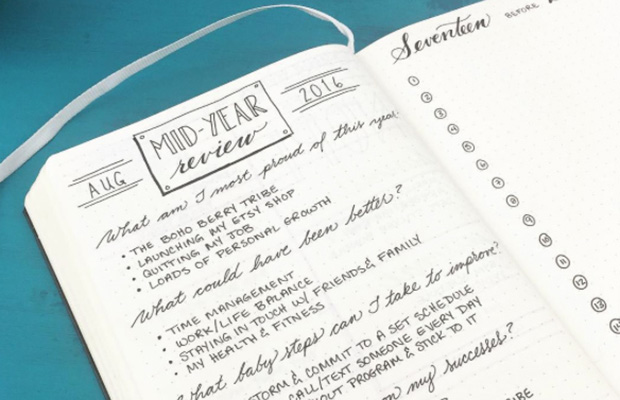 AUG
MIID-YEAR
review
2016
What am I most proud of this year?
• THE BOHO BERRY TRIBE
• LAUNCHING MY ETSY SHOP
• QUITTING MY JOB
• LOADS OF PERSONAL GROWTH
What could have been better?
• TIME MANAGEMENT
• WORK/LIFE BALANCE
• STAYING IN TOUCH W/ FRIENDS & FAMILY
• MY HEALTH & FITNESS
What baby steps can I take to improve?
& COMMIT TO A SET SCHEDULE
CALL/TEXT SOMEONE EVERY DAY
PROGRAM & STICK TO IT
my successes?
Seventeen BEFORE
1
2
3
4
5
6
7
8
9
10
11
12
13